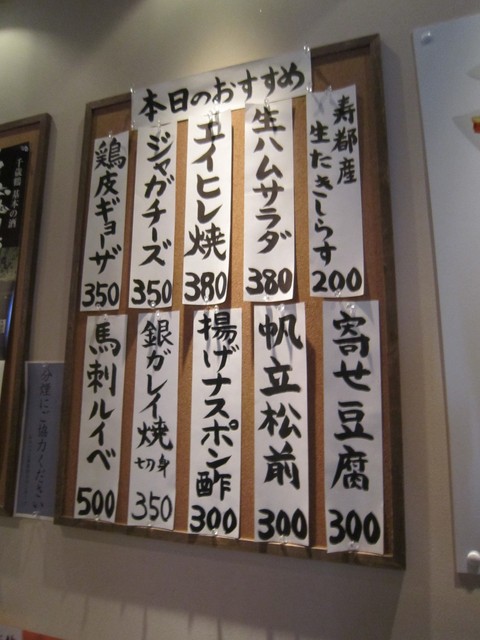 本日のおすすめ
寿都産
生たきしらす
200
生ハムサラダ
380
エイヒレ焼
380
ジャガチーズ
350
鶏皮ギョーザ
350
寄せ豆腐
300
帆立松前
300
揚げナスポン酢
300
銀ガレイ焼
切身
350
馬刺ルイベ
500
千歳鶴 基本の酒
分煙にご協力ください